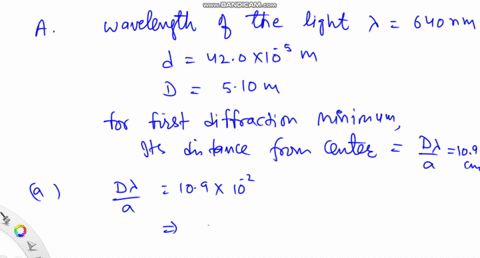 www.BANDICAM.com
A. wavelength of the light λ = 640 nm
d = 42.0 × 10⁻⁵ m
D = 5.10 m
for first diffraction minimum,
Its distance from center = Dλ/a = 10.9 cm
(a) Dλ/a = 10.9 × 10⁻²
⇒